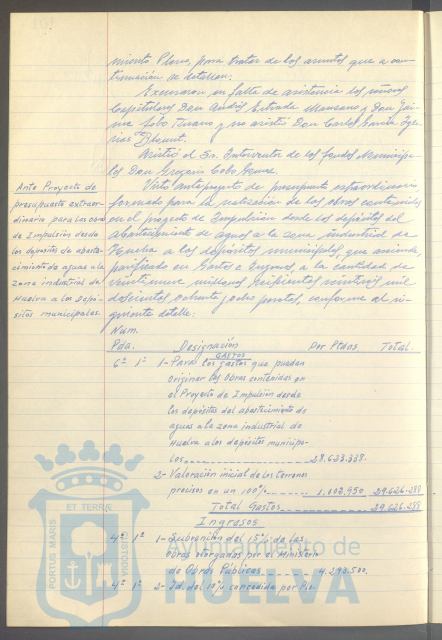 miento Pleno, para tratar de los asuntos que a con-
tinuación se detallan:
Excusaron su falta de asistencia los señores
Capitulares Don Andrés Estrada Manzano y Don Jai-
me y no asistió Don Carlos García Igle-
sias
Asistió el Sr. Interventor de los fondos Municipa-
les Don Cobo
Ante Proyecto de
presupuesto extraor-
dinario para las obras
de Impulsión desde
los depósitos de abaste-
cimiento de aguas a la
zona industrial de
Huelva a los Depó-
sitos municipales.
Visto anteproyecto de presupuesto extraordinario
formado para la realización de las obras contenidas
en el proyecto de Impulsión desde los depósitos del
abastecimiento de aguas a la zona industrial de
Huelva a los depósitos municipales, que asciende,
nivelado en Gastos e Ingresos, a la cantidad de
veintinueve millones seiscientas veintiseis mil
doscientas ochenta y ocho pesetas, conforme al si-
guiente detalle:
Num.
Pda. Designación Por Ptdas. Total.
GASTOS
6º 1º 1- Para los gastos que puedan
originar las Obras contenidas en
el Proyecto de Impulsión desde
los depósitos del abastecimiento de
aguas a la zona industrial de
Huelva a los depósitos municipa-
les 28.623.338.
2- Valoración inicial de los terrenos
precisos en un 100% 1.002.950 29.626.288
Total Gastos 29.626.288
Ingresos
4º 1º 1- Subvención del 15% de las
Obras otorgadas por el Ministerio
de Obras Públicas 4.293.500.
4º 1º 2- Id. del 10% concedida por Pro-
PORTUS MARIS ET TERRAE CUSTODIA
Ayuntamiento de
HUELVA